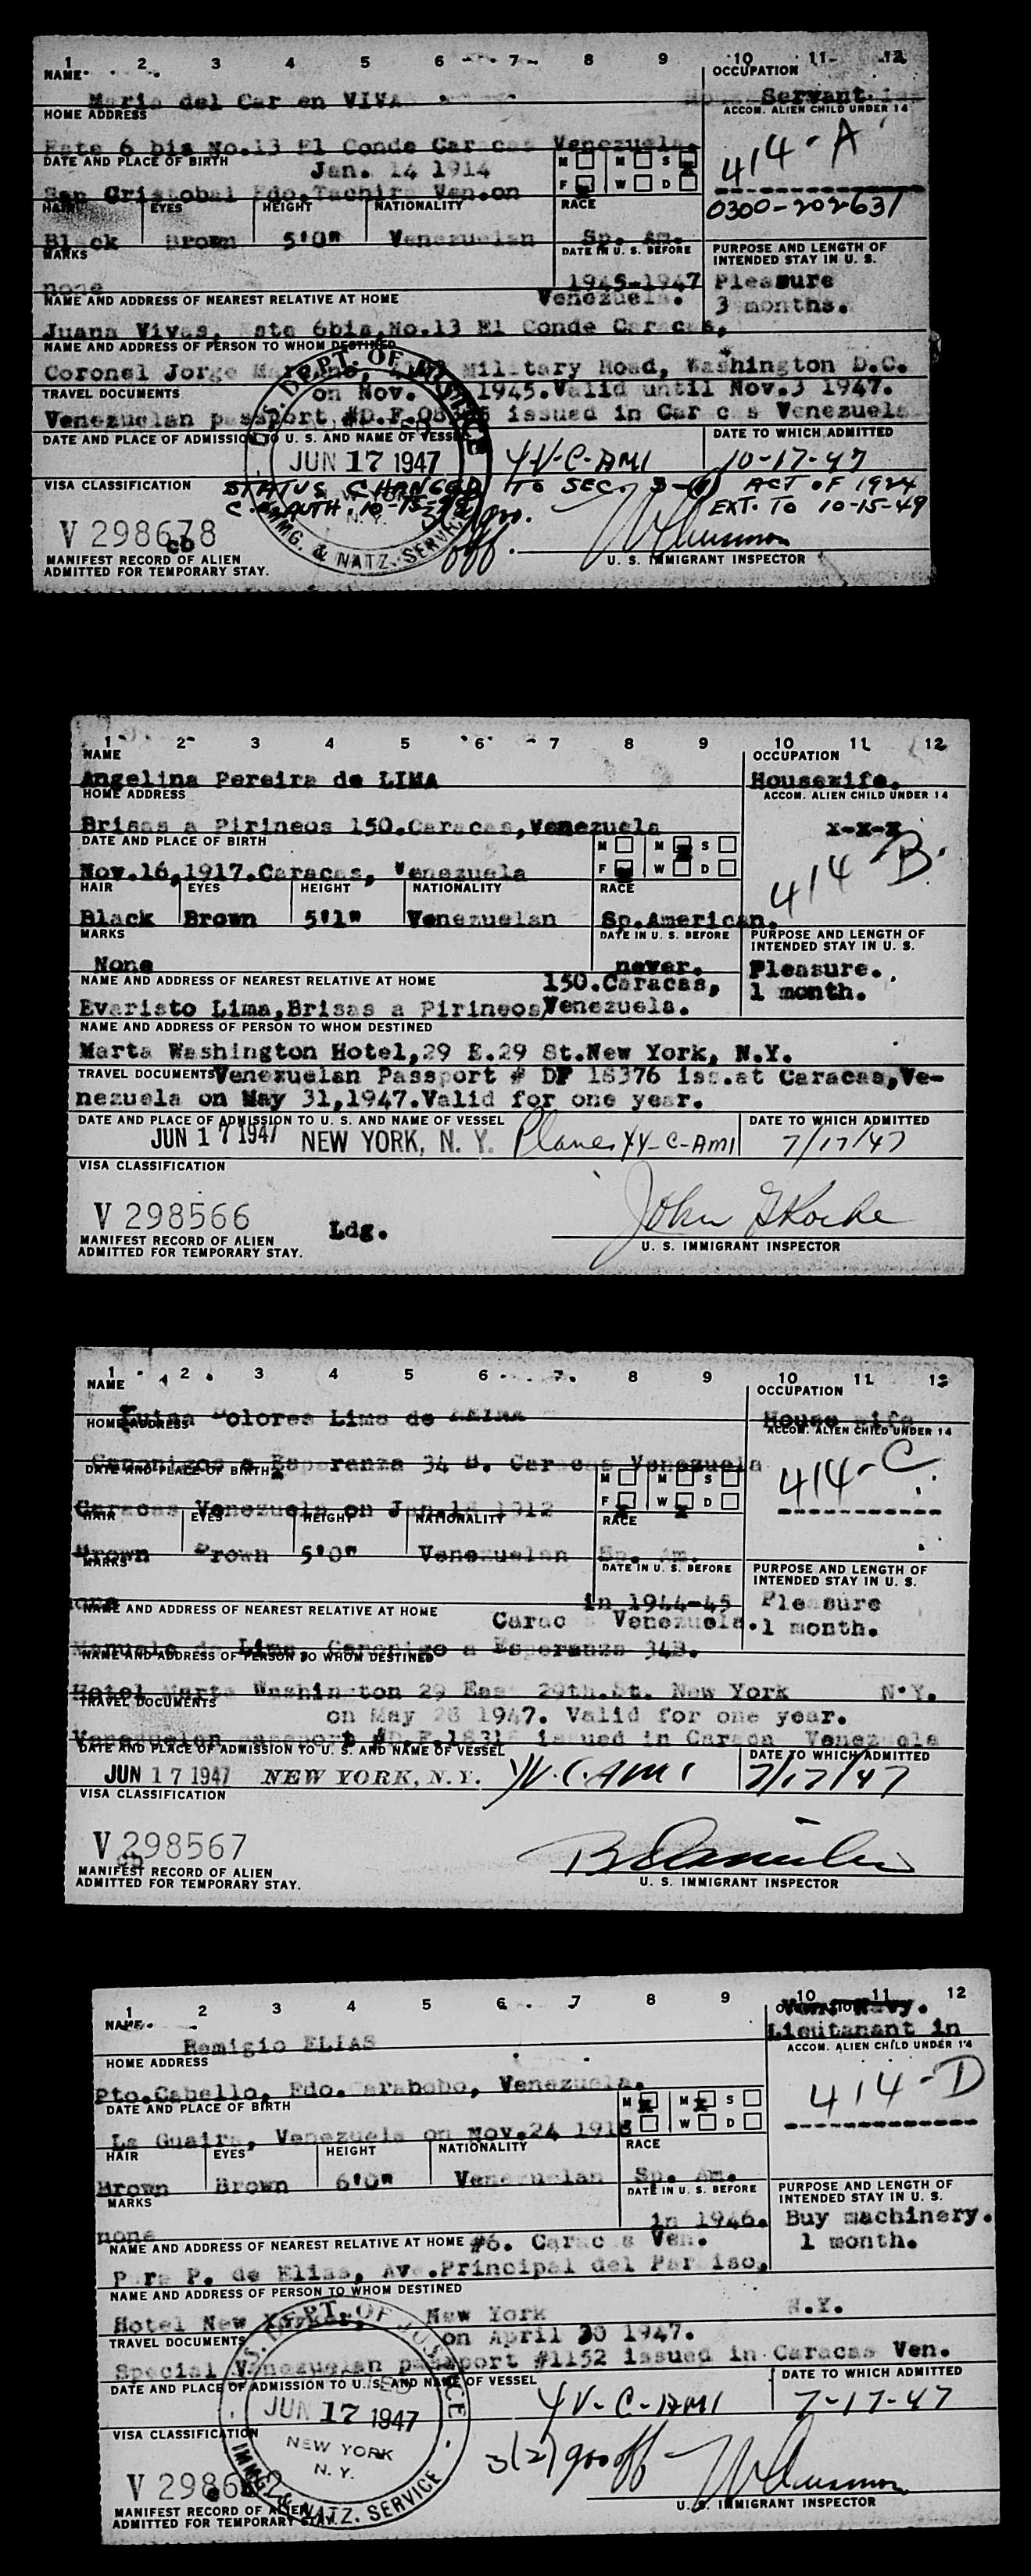 1 2 3 4 5 6 7 8 9 10 11 12
NAME OCCUPATION
Maria del Car en VIVA Servant
HOME ADDRESS ACCOM. ALIEN CHILD UNDER 14
Este 6 bis No.13 El Conde Caracas Venezuela.
414-A
DATE AND PLACE OF BIRTH Jan. 14 1914 M M S
San Cristobal Edo.Tachira Ven.on F W D
0300-202631
HAIR EYES HEIGHT NATIONALITY RACE
Black Brown 5'0" Venezuelan Sp. Am.
MARKS DATE IN U. S. BEFORE PURPOSE AND LENGTH OF INTENDED STAY IN U. S.
none 1945-1947 Pleasure
NAME AND ADDRESS OF NEAREST RELATIVE AT HOME Venezuela. 3 months.
Juana Vivas, Este 6bis,No.13 El Conde Caracas,
NAME AND ADDRESS OF PERSON TO WHOM DESTINED
Coronel Jorge Military Road, Washington D.C.
TRAVEL DOCUMENTS on Nov. 1945.Valid until Nov.3 1947.
Venezuelan passport #D.F. issued in Car c s Venezuela
DATE AND PLACE OF ADMISSION TO U. S. AND NAME OF VESSEL DATE TO WHICH ADMITTED
U.S. DEPT. OF JUSTICE
JUN 17 1947 YV-C-AMI 10-17-47
VISA CLASSIFICATION STATUS CHANGED TO SEC. 3-(1) ACT OF 1924
C.O. AUTH. 10-15- EXT. TO 10-15-49
N.Y.
IMMG. & NATZ. SERVICE
V 298678
cb
MANIFEST RECORD OF ALIEN
ADMITTED FOR TEMPORARY STAY. U. S. IMMIGRANT INSPECTOR
1 2 3 4 5 6 7 8 9 10 11 12
NAME OCCUPATION
Angelina Pereira de LIMA Housewife.
HOME ADDRESS ACCOM. ALIEN CHILD UNDER 14
Brisas a Pirineos 150.Caracas,Venezuela x-x-x
414-B.
DATE AND PLACE OF BIRTH M M S
Nov.16,1917.Caracas, Venezuela F W D
HAIR EYES HEIGHT NATIONALITY RACE
Black Brown 5'1" Venezuelan Sp.American.
MARKS DATE IN U. S. BEFORE PURPOSE AND LENGTH OF INTENDED STAY IN U. S.
None never. Pleasure.
NAME AND ADDRESS OF NEAREST RELATIVE AT HOME 150.Caracas, 1 month.
Evaristo Lima,Brisas a Pirineos,Venezuela.
NAME AND ADDRESS OF PERSON TO WHOM DESTINED
Marta Washington Hotel,29 E.29 St.New York, N.Y.
TRAVEL DOCUMENTS Venezuelan Passport # DF 18376 iss.at Caracas,Ve-
nezuela on May 31,1947.Valid for one year.
DATE AND PLACE OF ADMISSION TO U. S. AND NAME OF VESSEL DATE TO WHICH ADMITTED
JUN 17 1947 NEW YORK, N. Y. Plane YV-C-AMI 7/17/47
VISA CLASSIFICATION
V 298566 Ldg. John
MANIFEST RECORD OF ALIEN
ADMITTED FOR TEMPORARY STAY. U. S. IMMIGRANT INSPECTOR
1 2 3 4 5 6 7 8 9 10 11 12
NAME OCCUPATION
Luisa Dolores Lima de House wife
HOME ADDRESS ACCOM. ALIEN CHILD UNDER 14
Canonigos a Esperanza 34 B. Caracas Venezuela
414-C.
DATE AND PLACE OF BIRTH M M S
Caracas Venezuela on Jan.1 1912 F W D
HAIR EYES HEIGHT NATIONALITY RACE
Brown Brown 5'0" Venezuelan Sp. Am.
MARKS DATE IN U. S. BEFORE PURPOSE AND LENGTH OF INTENDED STAY IN U. S.
none in 1944-45 Pleasure
NAME AND ADDRESS OF NEAREST RELATIVE AT HOME Carac s Venezuela. 1 month.
Manuela de Lima, Canonigo a Esperanza 34B.
NAME AND ADDRESS OF PERSON TO WHOM DESTINED
Hotel Marta Washington 29 East 29th.St. New York N.Y.
TRAVEL DOCUMENTS on May 28 1947. Valid for one year.
Venezuelan passport #D.F.1831 issued in Caracas Venezuela
DATE AND PLACE OF ADMISSION TO U. S. AND NAME OF VESSEL DATE TO WHICH ADMITTED
JUN 17 1947 NEW YORK, N.Y. YV.C.AMI 7/17/47
VISA CLASSIFICATION
V 298567
cb
MANIFEST RECORD OF ALIEN
ADMITTED FOR TEMPORARY STAY. U. S. IMMIGRANT INSPECTOR
1 2 3 4 5 6 7 8 9 10 11 12
Ven. Navy.
NAME OCCUPATION
Remigio ELIAS Lieutanant in
HOME ADDRESS ACCOM. ALIEN CHILD UNDER 14
Pto.Cabello, Edo. Carabobo, Venezuela.
414-D
DATE AND PLACE OF BIRTH M M S
La Guaira, Venezuela on Nov.24 1918 F W D
HAIR EYES HEIGHT NATIONALITY RACE
Brown Brown 6'0" Venezuelan Sp. Am.
MARKS DATE IN U. S. BEFORE PURPOSE AND LENGTH OF INTENDED STAY IN U. S.
none in 1946. Buy machinery.
NAME AND ADDRESS OF NEAREST RELATIVE AT HOME #6. Carac s Ven. 1 month.
P ra P. de Elias, Ave.Principal del Paraiso,
NAME AND ADDRESS OF PERSON TO WHOM DESTINED
Hotel New Yorker, New York N.Y.
TRAVEL DOCUMENTS on April 30 1947.
Special Venezuelan passport #1152 issued in Caracas Ven.
DATE AND PLACE OF ADMISSION TO U. S. AND NAME OF VESSEL DATE TO WHICH ADMITTED
U.S. DEPT. OF JUSTICE
JUN 17 1947 YV-C-AMI 7-17-47
VISA CLASSIFICATION NEW YORK
N. Y. 3(2)
IMMG. & NATZ. SERVICE
MANIFEST RECORD OF ALIEN
ADMITTED FOR TEMPORARY STAY. U. S. IMMIGRANT INSPECTOR